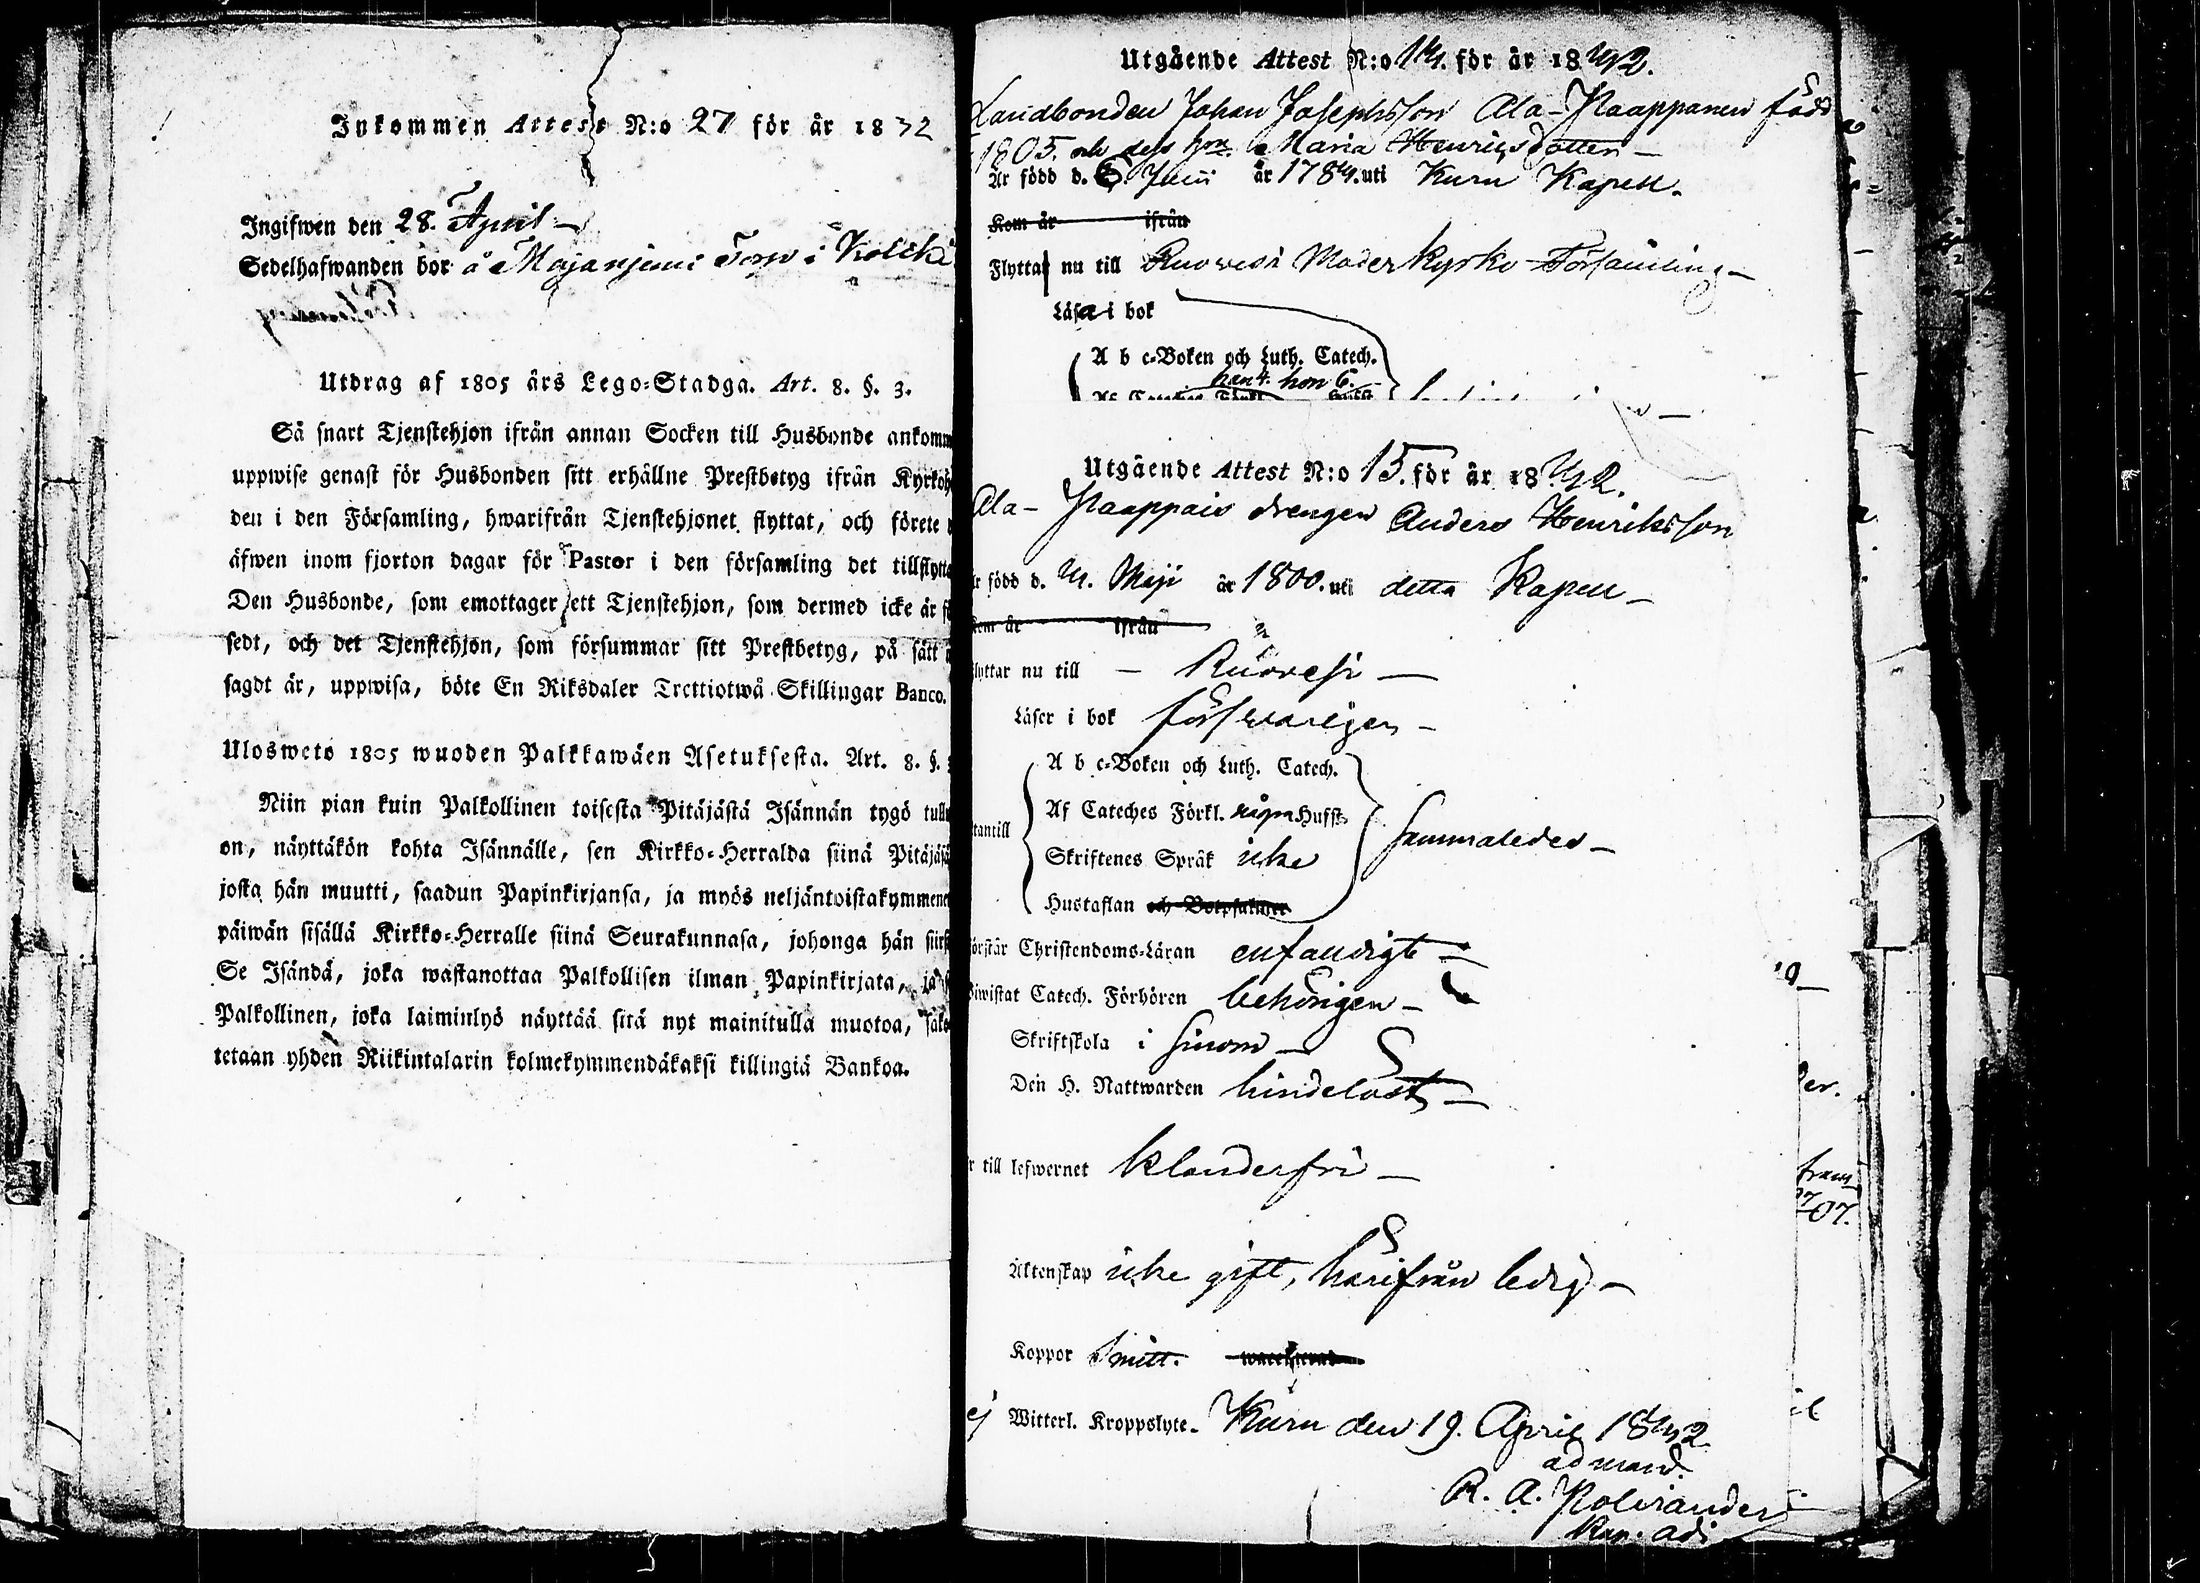 Inkommen Attest N:o 27 för år 1832
Ingifwen den 28. April
Sedelhafwanden bor å Majanjemi Torp i Kolcki
Utdrag af 1805 års Lego-Stadga. Art. 8. §. 3.
Så snart Tjenstehjon ifrån annan Socken till Husbonde ankomm
uppwise genast för Husbonden sitt erhållne Prestbetyg ifrån Kyrkoh
den i den Församling, hwarifrån Tjenstehjonet flyttat, och förete
äfwen inom fjorton dagar för Pastor i den församling det tillflytta
Den Husbonde, som emottager ett Tjenstehjon, som dermed icke är f
sedt, och det Tjenstehjon, som försummar sitt Prestbetyg, på sätt
sagdt är, uppwisa, böte En Riksdaler Trettiotwå Skillingar Banco.
Ulosweto 1805 wuoden Palkkawäen Asetuksesta. Art. 8. §.
Niin pian kuin Palkollinen toisesta Pitäjästä Isännän tygö tull
on, näyttäkön kohta Isännälle, sen Kirkko-Herralda siinä Pitäjäs
josta hän muutti, saadun Papinkirjansa, ja myös neljäntoistakymmene
päiwän sisällä Kirkko-Herralle siinä Seurakunnasa, johonga hän siirt
Se Isändä, joka wastanottaa Palkollisen ilman Papinkirjata, ja
Palkollinen, joka laiminlyö näyttää sitä nyt mainitulla muotoa, sako
tetaan yhden Riikintalarin kolmekymmendäkaksi killingiä Bankoa.
Utgående Attest N:o 14. för år 1842.
Landbonden Johan Josephsson Ala-Paappanen född
1805. och dess hru. Maria Henricsdotter
Är född d. 6. Junii år 1784. uti Kuru Kapell.
Kom år ifrån
Flytta nu till Ruovesi Moderkyrko Församling
Läsa i bok
A b c-Boken och Luth. Catech.
han 4. hon 6.
Utgående Attest N:o 15. för år 1842.
Ala-Paappais drengen Anders Henriksson
är född d. 4. Maji år 1800. uti detta Kapell
Kom år ifrån
flyttar nu till Ruovesi
Läser i bok försvarligen
A b c-Boken och Luth. Catech.
Af Cateches Förkl. några Hufst.
utantill
Skriftenes Språk icke
sammaledes
Hustaflan och Botpsalmer
förstår Christendoms-Läran enfaldigt
Biwistat Catech. Förhören behörigen
Skriftskola i sinom
Den H. Nattwarden hindelöst
r till lefwernet klanderfri
Äktenskap icke gift, härifrån ledig
Koppor smitt.
ej Witterl. Kroppslyte. Kuru den 19. April 1842.
ad mand.
R. A. Polviander
Kap. adj.